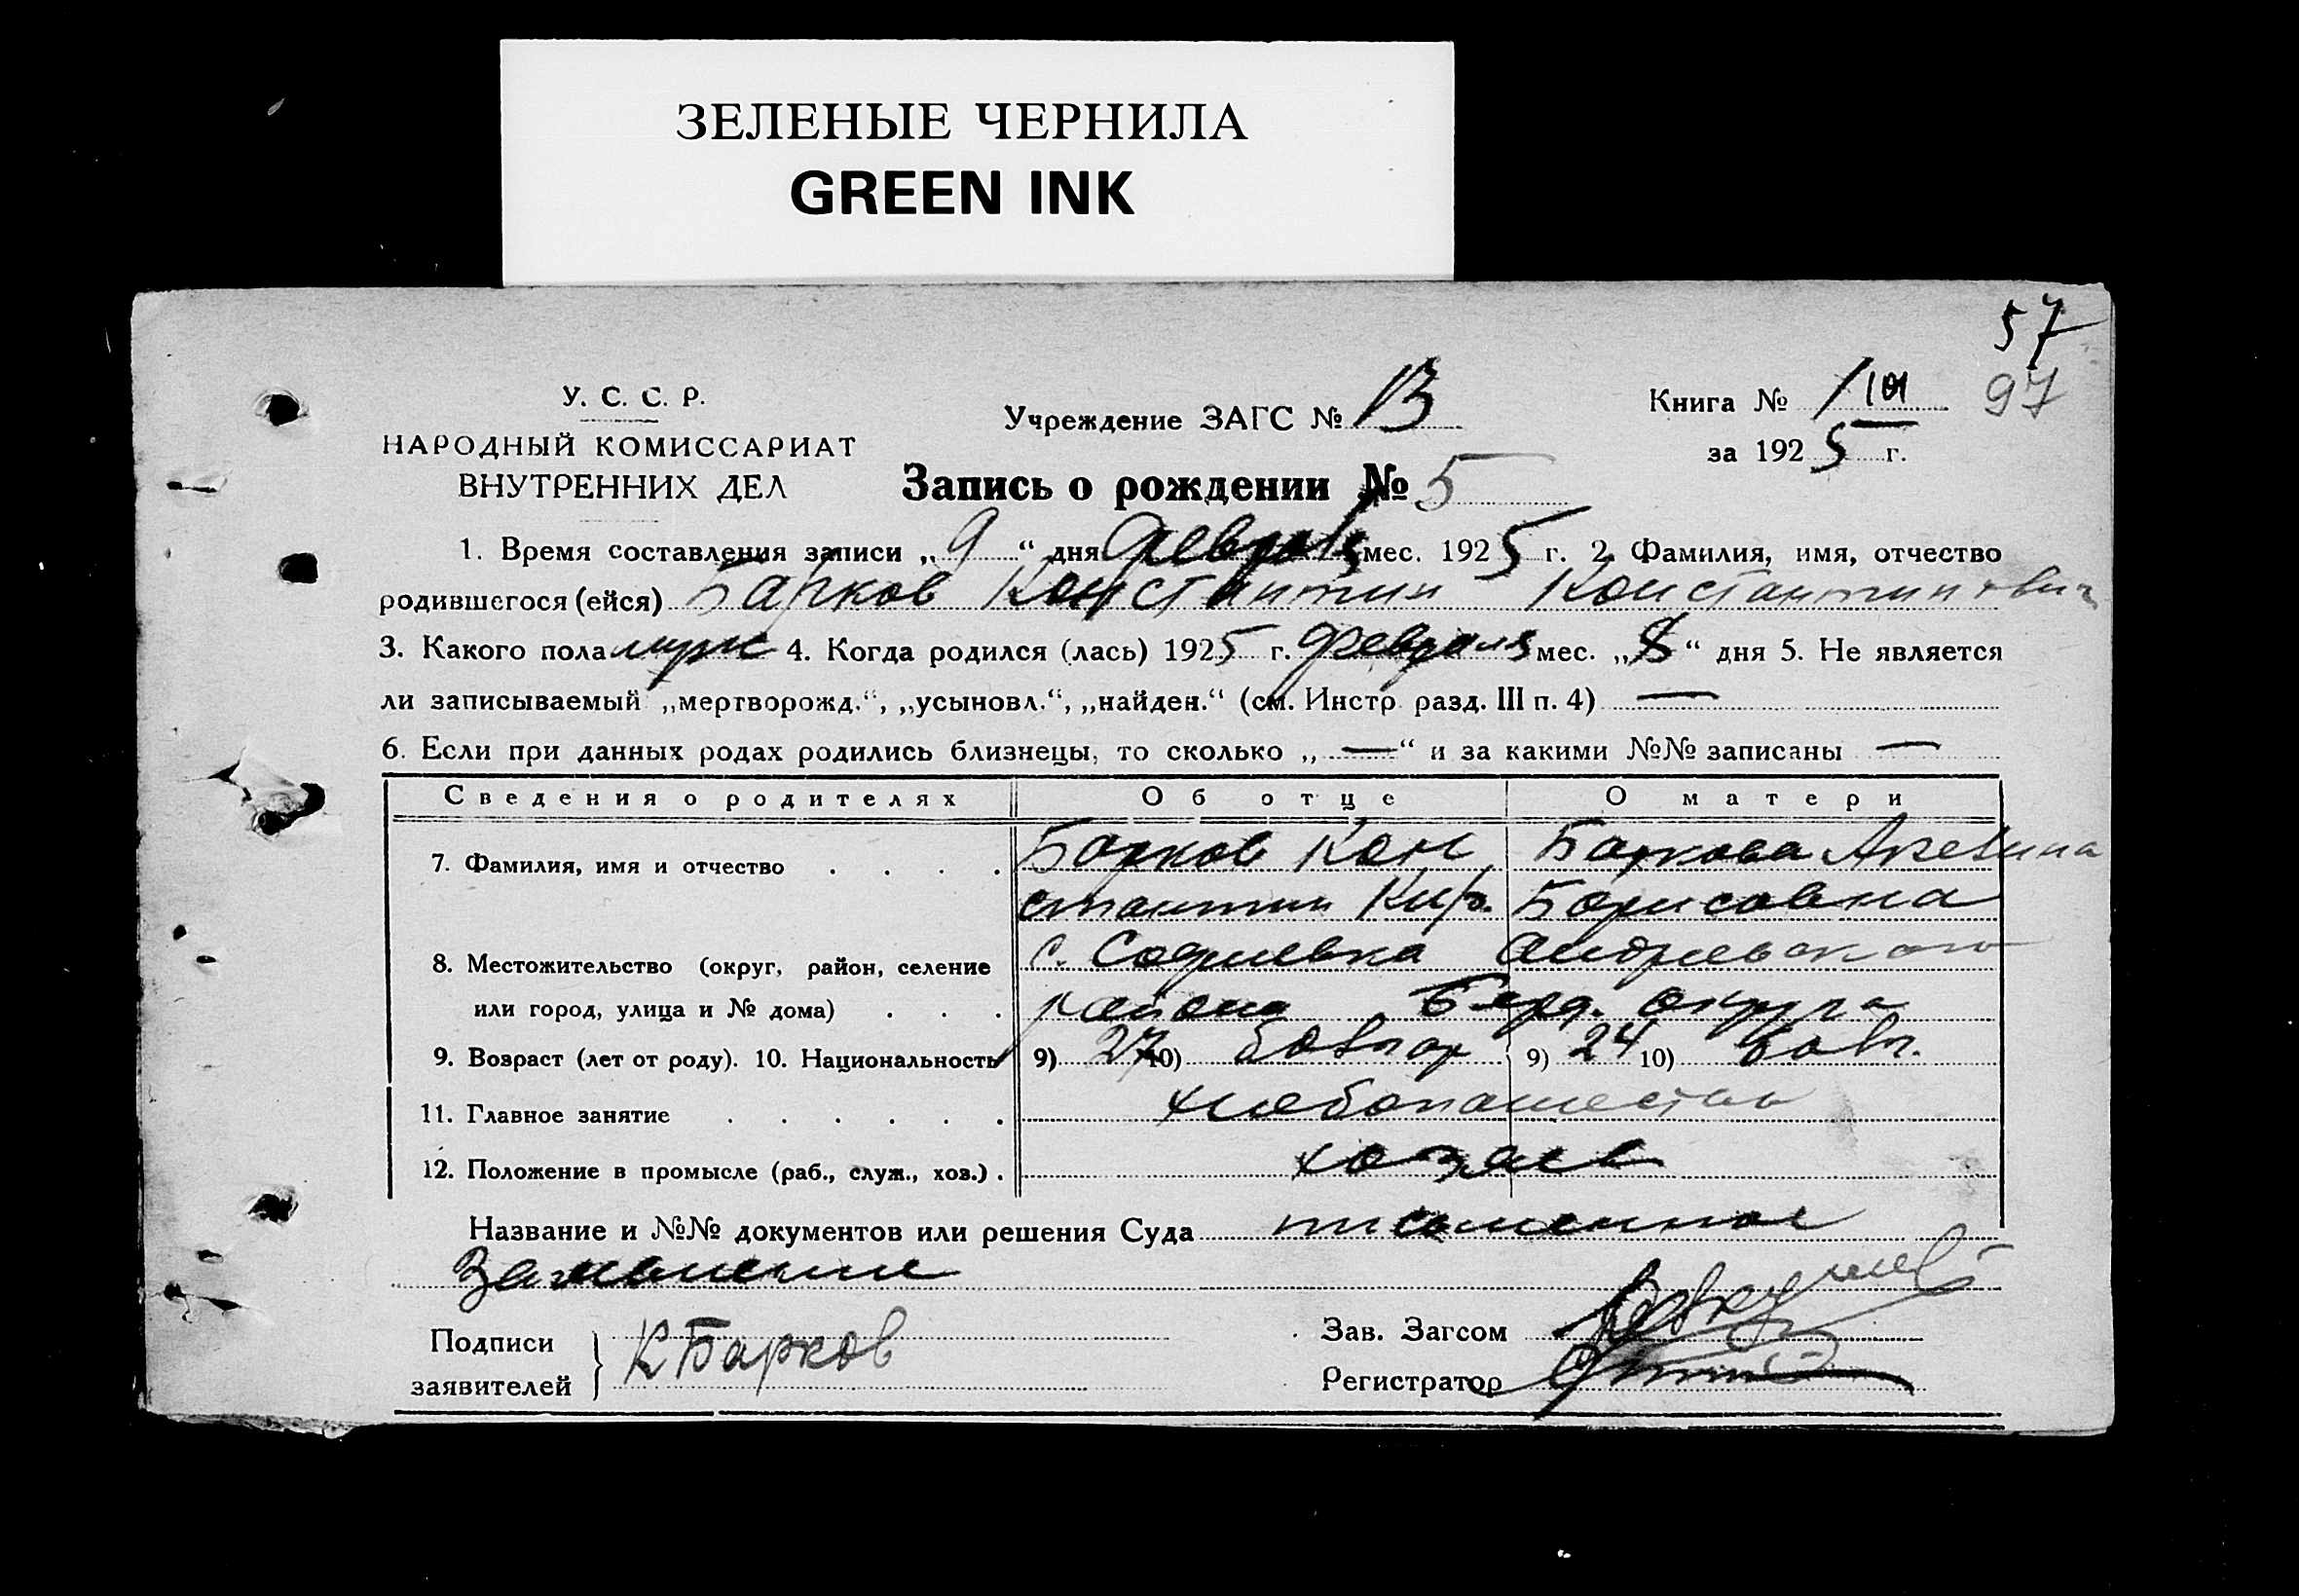 ЗЕЛЕНЫЕ ЧЕРНИЛА
GREEN INK
57
97
У. С. С. Р.
НАРОДНЫЙ КОМИССАРИАТ
ВНУТРЕННИХ ДЕЛ
Учреждение ЗАГС № 13
Книга № 1
за 1925 г.
Запись о рождении № 5
1. Время составления записи „9“ дня февраля мес. 1925 г. 2. Фамилия, имя, отчество
родившегося (ейся) Барков Константин Константинович
3. Какого пола муж 4. Когда родился (лась) 1925 г. февраля мес. „8“ дня 5. Не является
ли записываемый „мертворожд.“, „усыновл.“, „найден.“ (см. Инстр. разд. III п. 4) —
6. Если при данных родах родились близнецы, то сколько „—“ и за какими №№ записаны —
Сведения о родителях Об отце О матери
7. Фамилия, имя и отчество Барков Кон Баркова
стантин Кир. Борисовна
8. Местожительство (округ, район, селение с. Софиевка Андриевского
или город, улица и № дома) района Берд. округа
9. Возраст (лет от роду). 10. Национальность 9) 27 10) болгар 9) 24 10) болг.
11. Главное занятие хлебопашество
12. Положение в промысле (раб., служ., хоз.) хозяев
Название и №№ документов или решения Суда письменное
заявление
Подписи
заявителей К Барков
Зав. Загсом
Регистратор